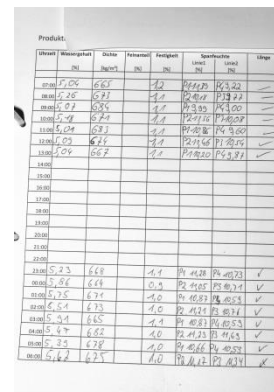 Produkt:
Uhrzeit Wassergehalt Dichte Feinanteil Festigkeit Spanfeuchte Länge
Linie1 Linie2
[%] [kg/m³] [%] [%] [%] [%]
07:00 5,04 665 1,2 P1 P4 9,22
08:00 5,26 673 1,1 P2 P3 9,77
09:00 5,07 684 1,1 P4
10:00 671 1,1 P2 11,36 P3 10,08
11:00 5,01 683 1,1 P1 10,86 P4 9,60
12:00 5,09 674 1,1 P2 11,46 P3 10,54
13:00 5,04 667 1,1 P1 10,20 P4 9,87
14:00
15:00
16:00
17:00
18:00
19:00
20:00
21:00
22:00
23:00 5,23 668 1,1 P1 11,28 P4 10,73 √
00:00 5,86 664 0,9 P2 11,05 P3 10,71 √
01:00 5,75 671 1,0 P1 10,87 P4 10,59 √
02:00 5,51 673 1,0 P2 11,21 P3 √
03:00 5,91 665 1,1 P1 10,87 P4 10,53 √
04:00 5,47 682 1,0 P2 11,23 P3 11,69 √
05:00 5,39 678 1,0 P1 10,66 P4 10,52 √
06:00 675 1,0 P2 P3